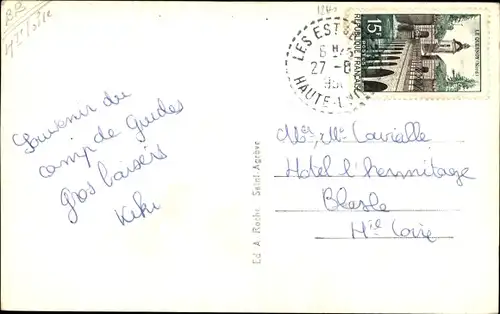 BR
Hte Loire
LES EST
6 H
27 - 8
HAUTE-L
15F
RÉPUBLIQUE FRANÇAISE
LE QUESNOY (Nord)
Souvenir du
camp de Guides
gros baisers
Kiki
Ed. A. Roche, Saint-Agrève
Mr, Me Lavialle
Hotel l'hermitage
Blesle
Hte Loire